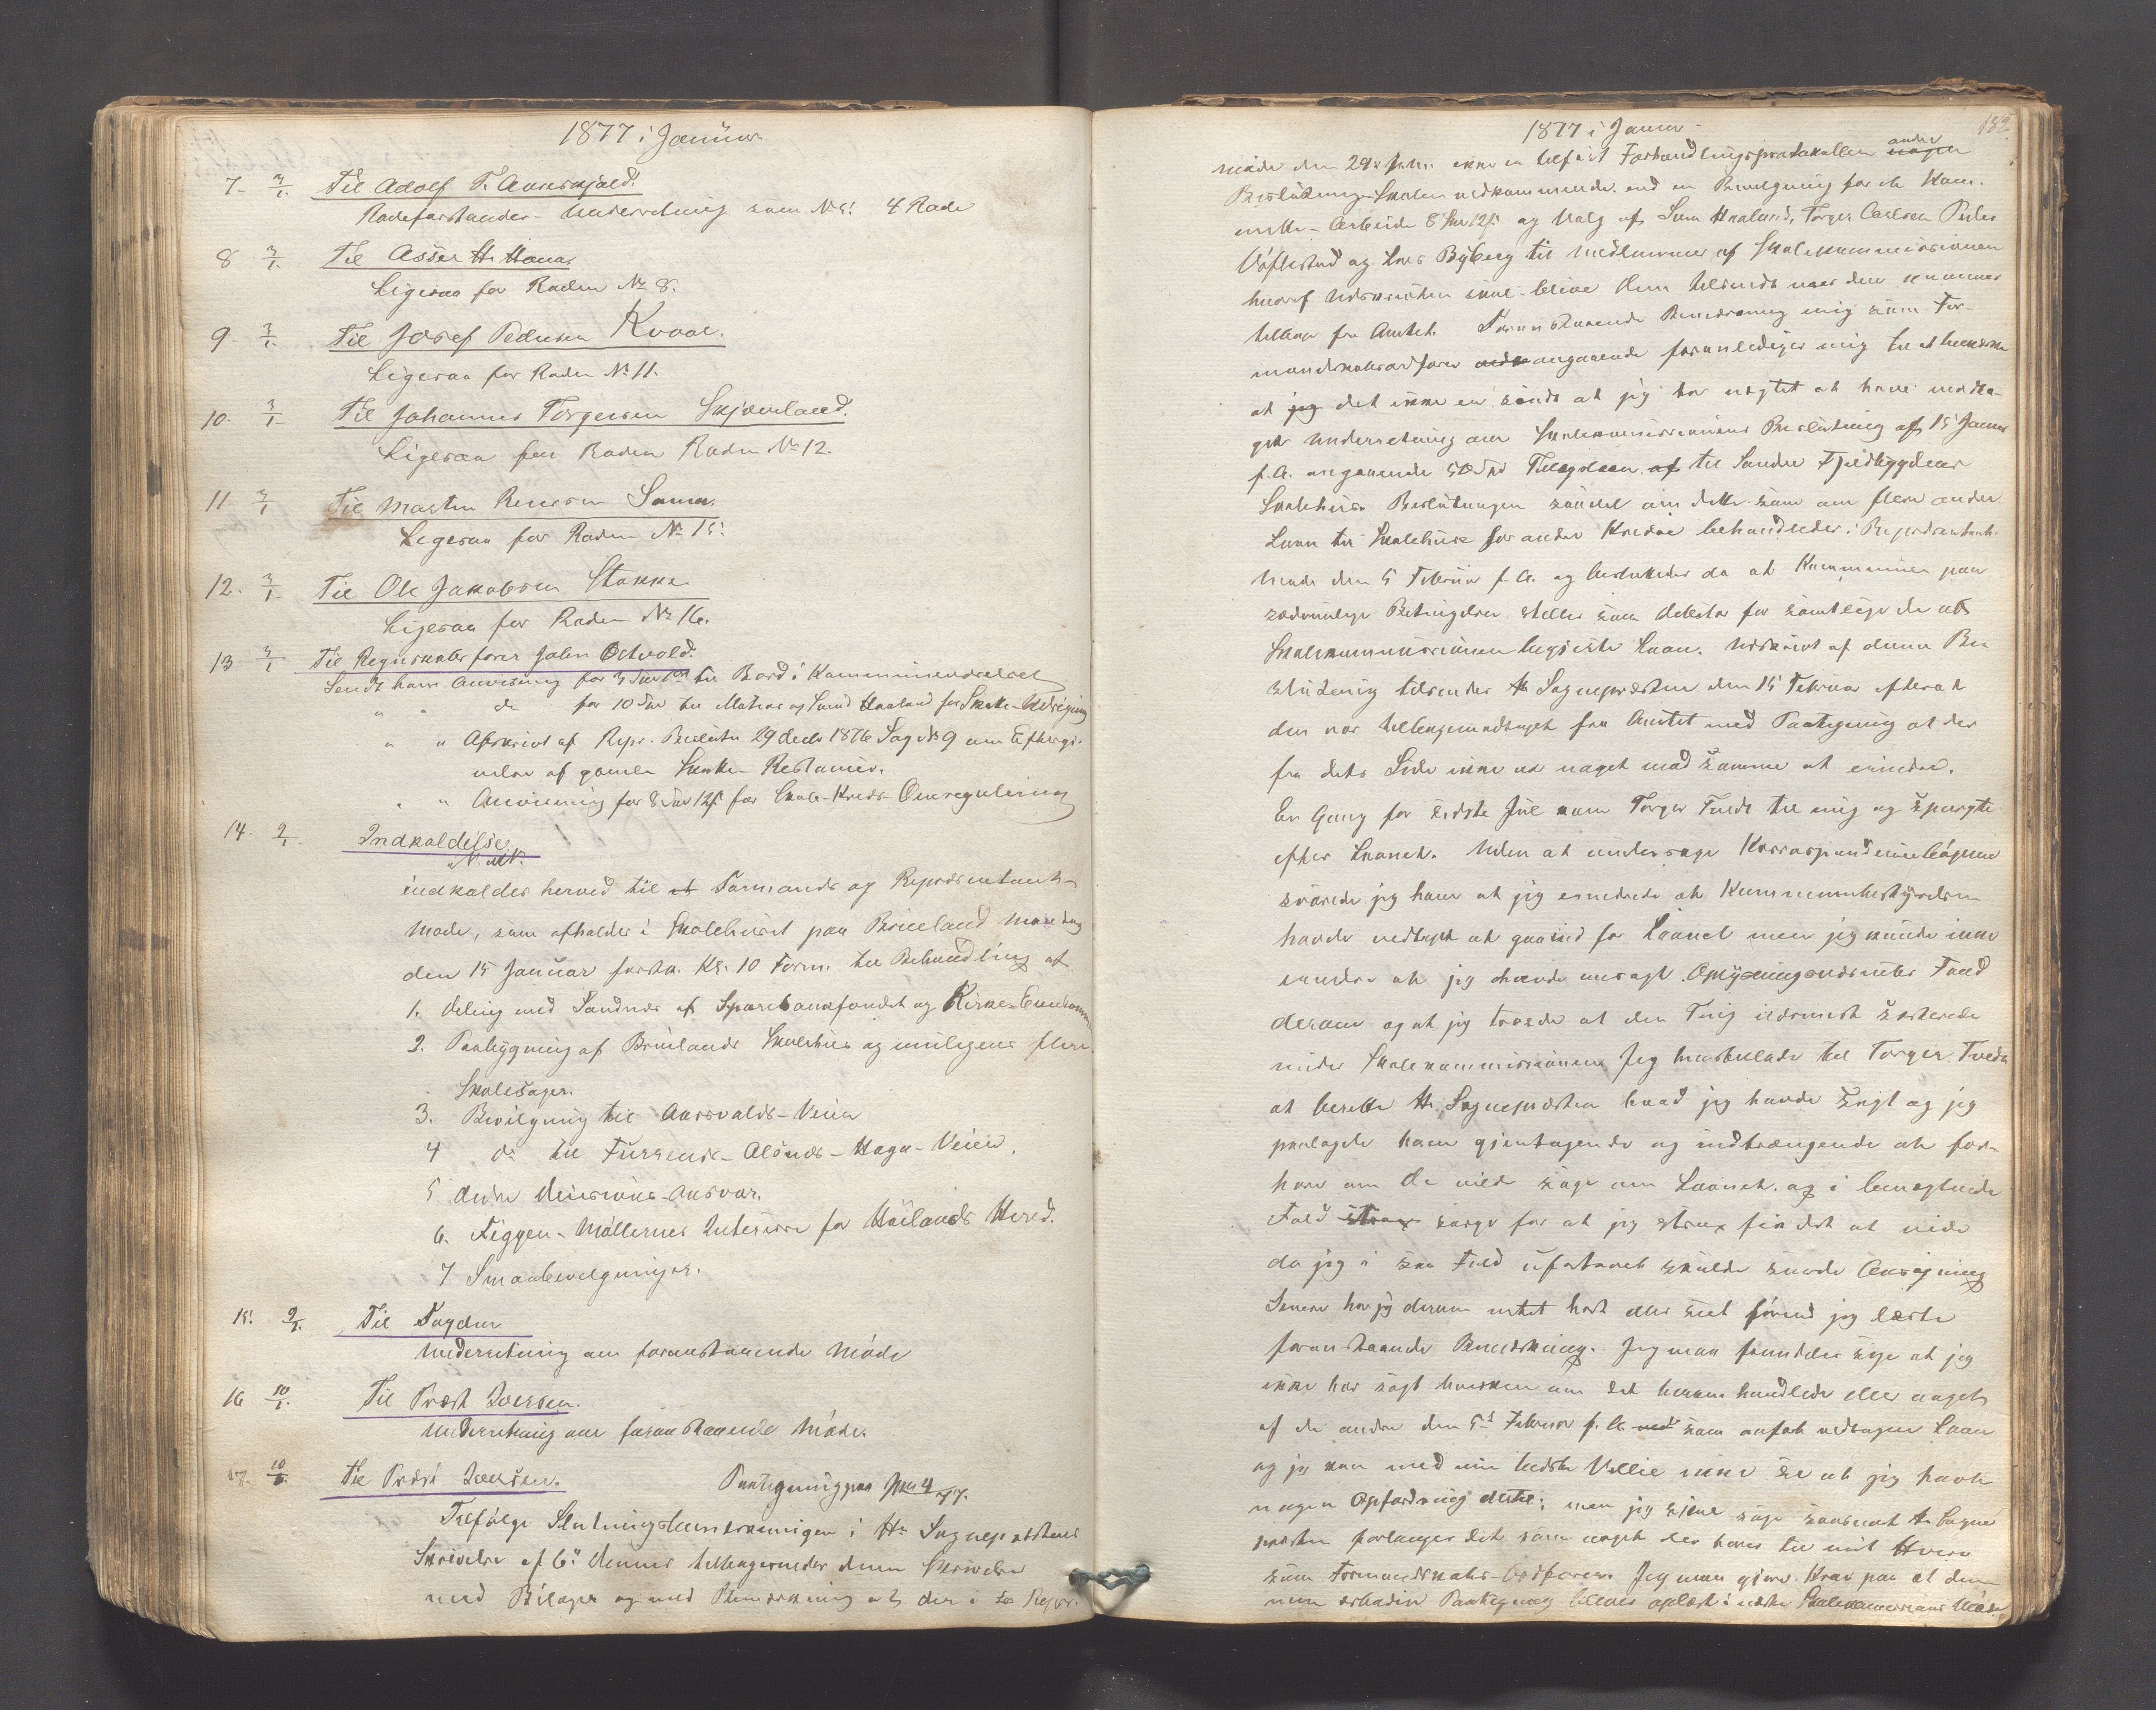 1877 i Januar
7. 3/1. Til Adolf T. Auserkjold.
Rodeforstander- Underretning som No 5. 4 Rode
8 3/1. Til Asser H. Hana.
Ligesaa for Roden No 8.
9. 3/1. Til Josef Pedersen Kvaal.
Ligesaa for Roden No 11.
10. 3/1. Til Johannes Torgersen Skjævland.
Ligesaa for Roden Roden No 12.
11 3/1 Til Morten Soma.
Ligesaa for Roden No 15.
12. 3/1 Til Ole Jakobsen Stokke.
Ligesaa for Roden No 16.
13 3/1 Til Regnskabsfører John Østvold.
Sendt ham Anvisning for til Bord i Kommunelokalet
" " do for 10 til Mathias og Svend Haaland for Skatte-Udligning
" " Afskrivt af Repr. Beslutn 29 decbr 1876 Sag No 9 om Eftergi-
velse af gamle Skatte-Restancer.
" " Anvisning for 8 12 for Skole-Kreds-Omregulering
14. 9/1 Indkaldelse.
N. N.
indkaldes herved til et Formands og Repræsentant-
møde, som afholdes i Skolehuset paa Brueland Mandag
den 15 Januar førstk. Kl. 10 Form. til Behandling af
1. Deling med Sandnes af Sparebankfondet og Kirke-
2. Paabygning af Bruelands Skolehus og muligens flere
Skolesager.
3. Bevilgning til Aarsvolds-Veien
4 do til Fursenes-Alsnes-Hagu-Veien.
5 Ansvar.
6. Figgen-Møllernes Interesse for Høilands Hered.
7 Smaabevilgninger.
15. 9/1. Til Fogden
Underretning om foranstaaende Møde
16 10/1. Til Præst Iversen.
Underretning om foranstaaende Møde.
17. 10/1. Til Præst Iversen. Paategning paa No 4/77.
Tilfølge Slutningsbemærkningen i Hr Sognepræstens
Skrivelse af 6te dennes tilbagesendes denne Skrivelse
med Bilager og med Bemærkning at der i Repr.
1877 i Januar 182.
møde den 29 ikke er tilført Forhandlingsprotokollen anden nogen
Beslutning Skolen vedkommende end en Bevilgning for
Arbeide 8 12 og Valg af Haaland, Torger Carlsen
og Lars Byberg til Medlemmer af Skolekommissionen
hvoraf Udskriften skal blive Dem tilsendt naar den kommer
tilbage fra Amtet. Foranstaaende Bemærkning mig som For-
mandskabsordfører angaaende foranlediger mig til at bemærke
at jeg det ikke er sandt at jeg har nægtet at have modta-
get Underretning om Skolekommissionens Beslutning af 15 Januar
f.A. angaaende til Søndre Fjeldbygdens
Skolehus. Beslutningen saavel om dette som om flere andre
Laan til Skolehuse for andre Kredse behandledes i Repræsentant-
møde den 5 Februar f.A. og besluttedes da at Kommunen paa
sædvanlige Betingelser stilles som debitor for samtlige de af
Skolekommissionen begjærte Laan. Udskrivt af denne Be-
slutning tilsendtes Hr Sognepræsten den 15 Februar efterat
den var tilbagemodtaget fra Amtet med Paategning at der
fra dets Side ikke var noget mod samme at erindre.
En Gang før sidste Jul kom Torger Tveds til mig og spurgte
efter Laanet. Uden at undersøge Korrespondencebøgerne
svarede jeg ham at jeg erindrede at Kommunebestyrelsen
havde vedtaget at gaa ind for Laanet men jeg kunde ikke
erindre at jeg havde Fond
derom og at jeg troede at den Ting nærmest sorterede
under Skolekommissionen. Jeg Torger Tveds
at berette Hr. Sognepræsten hvad jeg havde sagt og jeg
paalagde ham gjentagende og indtrængende at for-
høre om De vilde søge om Laanet og i benægtende
Fald strax sørge for at jeg strax fik det at vide
da jeg i saa Fald ufortøvet skulde sende Ansøgning
Senere har jeg derom intet hørt eller seet førend jeg læste
foranstaaende Bemærkning. Jeg maa fremdeles sige at jeg
ikke har søgt hverken om det herom handlede eller noget
af de andre den 5te Februar f.A. ved som anført vedtagne Laan
og jeg kan med min bedste Villie ikke se at jeg havde
nogen Opfordring dertil; men jeg skal søge saasnart Hr Sogne
præsten forlanger det som noget der hører til mit Hverv
som Formandskabs-Ordfører. Jeg maa gjøre Krav paa at denne
min Paategning bliver oplæst i næste Skolekommissions Møde